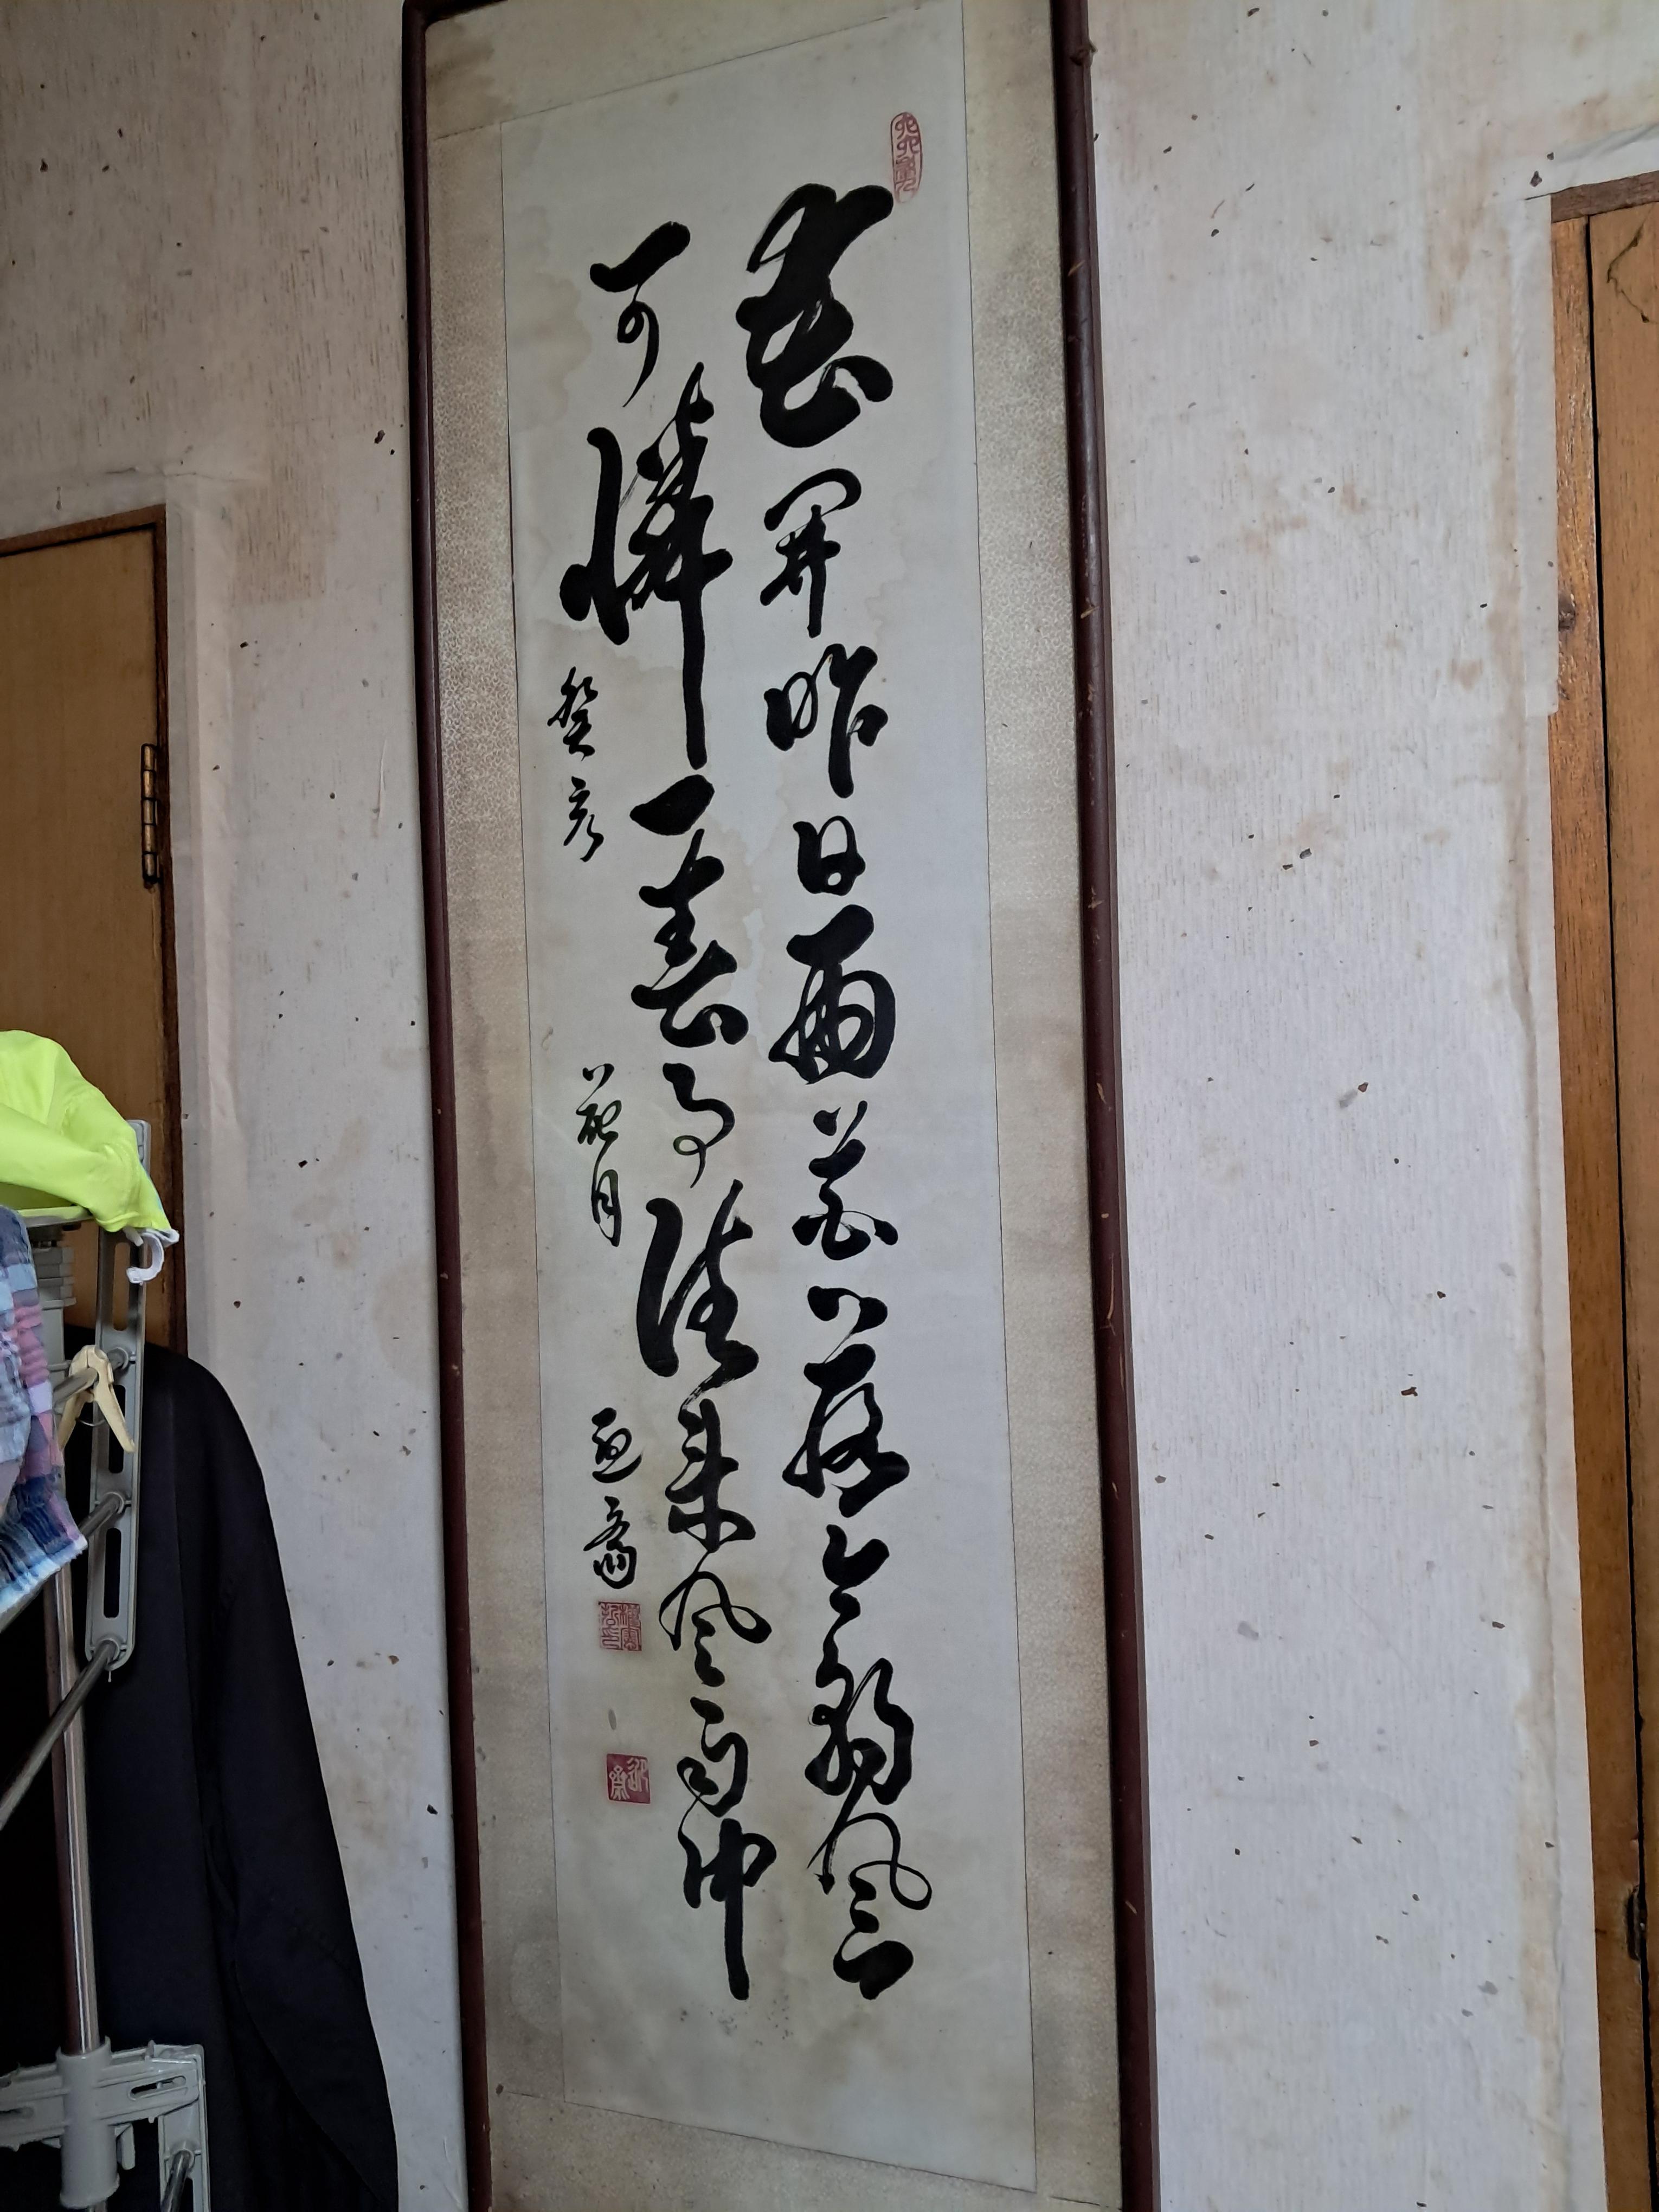 花開昨日雨花落今朝風
可憐一春事往來風雨中
癸亥 花月 齋